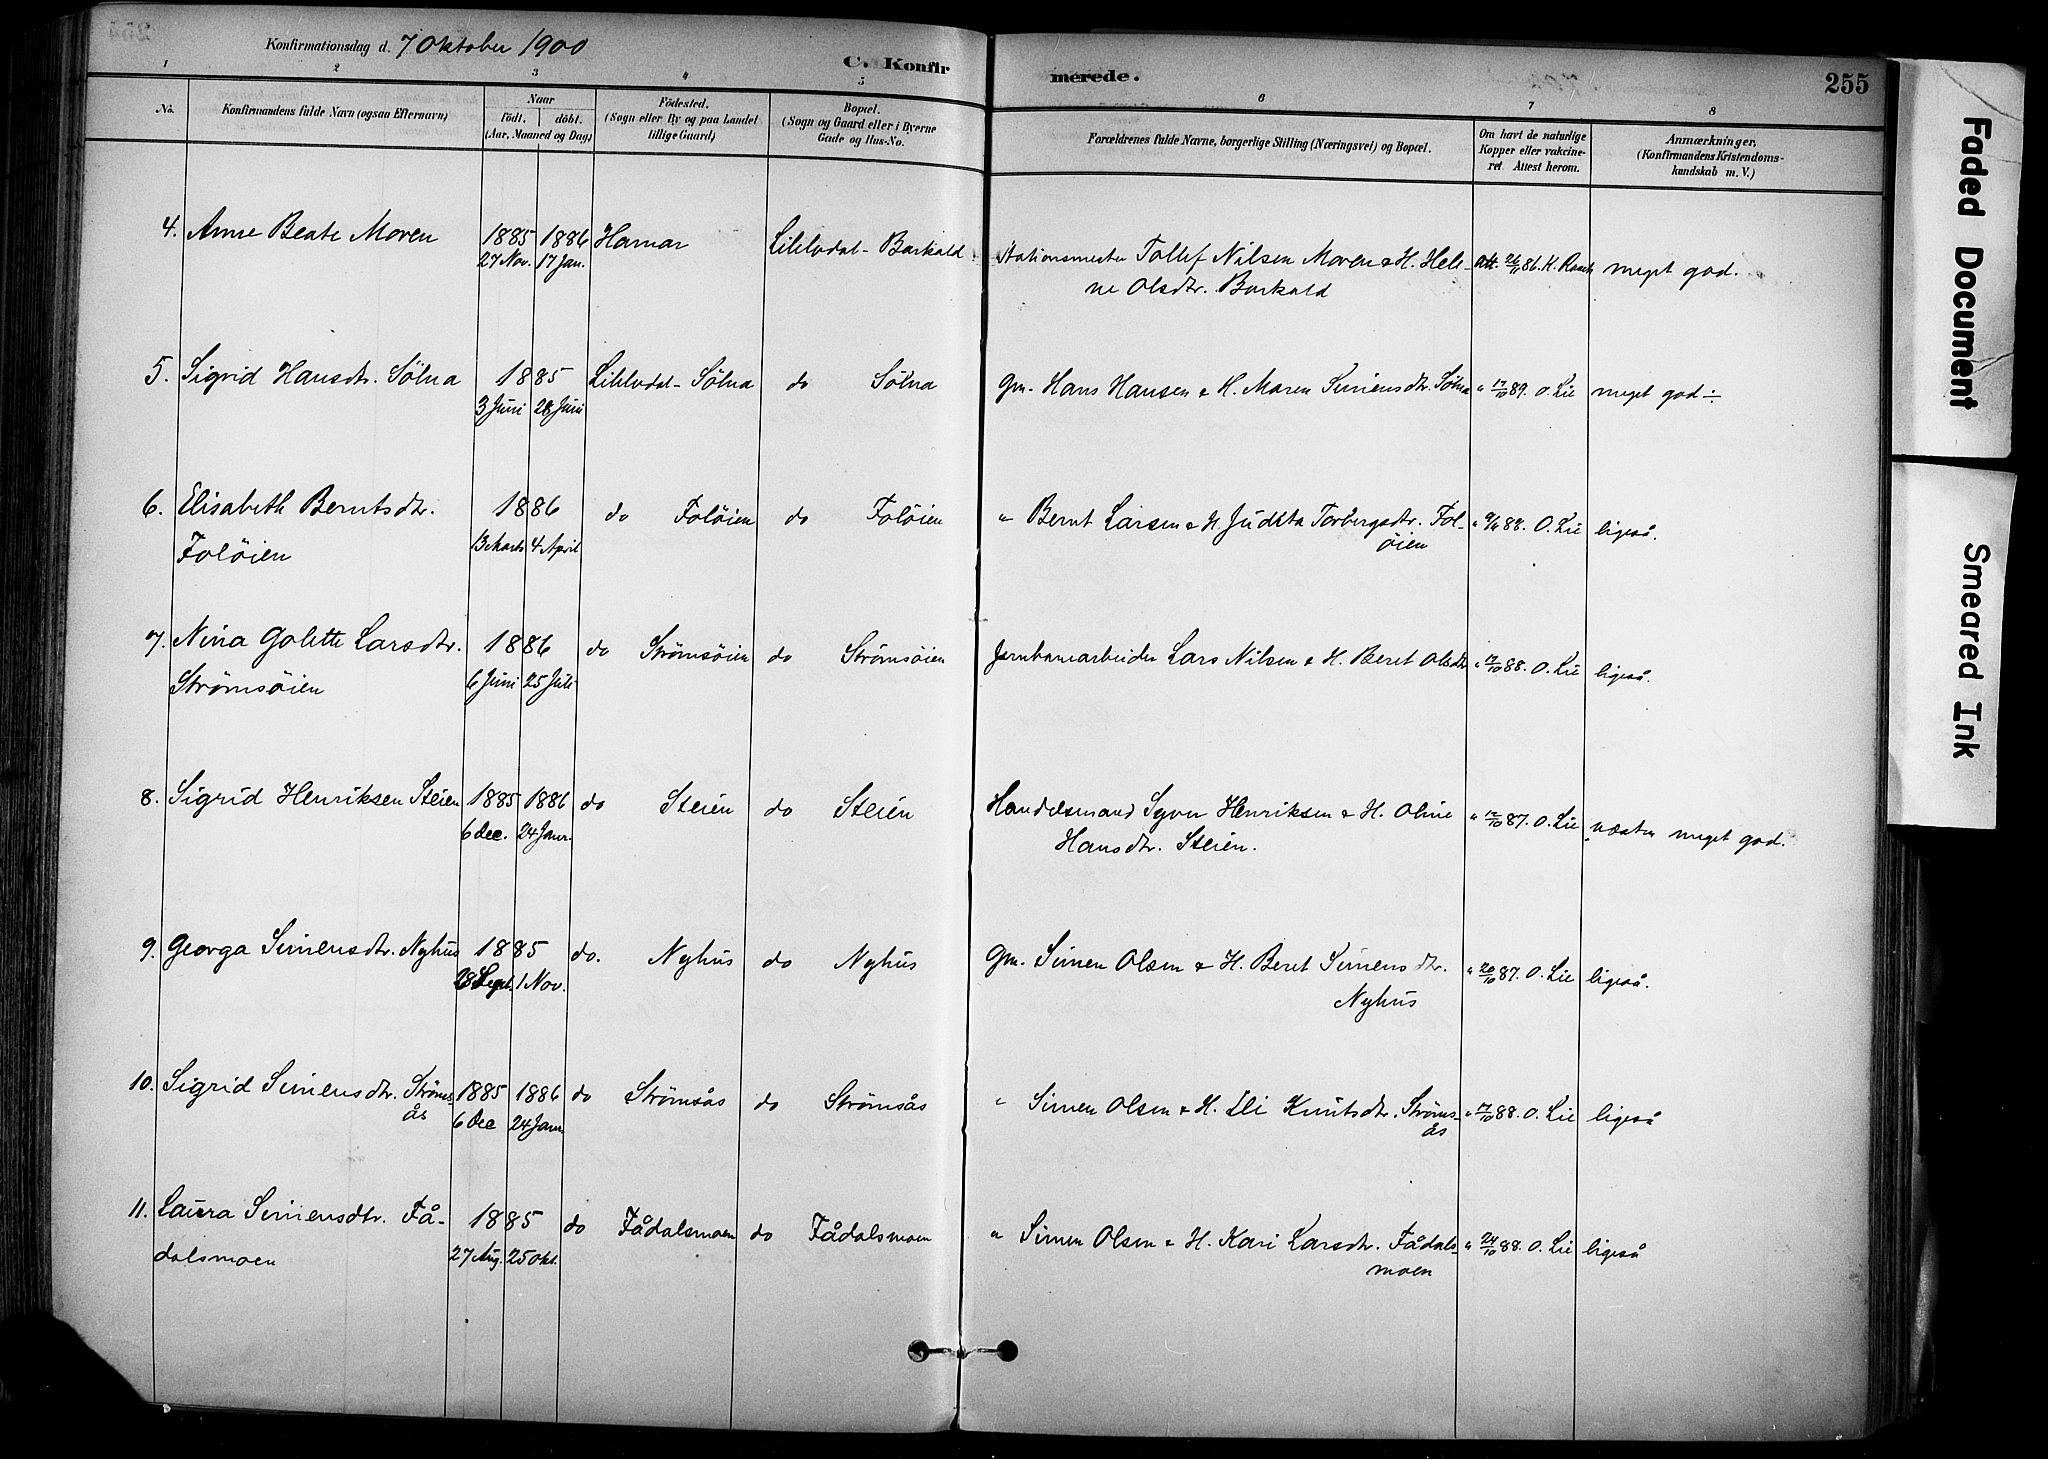 Konfirmationsdag d. 7 Oktober 1900
C. Konfirmerede.
255
1 2 3 5 6 7 8
No.
Konfirmandens fulde Navn (ogsaa Efternavn)
Naar
födt. döbt.
(Aar, Maaned og Dag)
Födested.
(Sogn eller By og paa Landet
tillige Gaard)
Bopæl.
(Sogn og Gaard eller i Byerne
Gade og Hus-No.
Forældrenes fulde Navne, borgerlige Stilling (Næringsvei) og Bopæl.
Om havt de naturlige
Kopper eller vakcine-
ret Attest herom.
Anmærkninger.
(Konfirmandens Kristendoms-
kundskab m. V.)
4. Anne Beate Moren 1885 1886 Hamar Lilleldal - Barkald Stationsmester Tollef Nilsen Moren & H. Hele- Att. 26/11 86. K. meget god.
27 Nov. 17 Jan.
ne Olsdtr. Barkald
5. Sigrid Hansdtr. Sölna 1885 Lilleldal - Sölna do Sölna Gm. Hans Hansen & H. Maren Simensdtr. Sölna " 17/10 89. O. Lie meget god ÷
3 Juni 28 Juni
6. Elisabeth Berntsdtr. 1886 do Folöien do Folöien " Bernt Larsen & H. Torbergsdtr. Fol- " 88. O. Lie ligeså.
Folöien 13 Marts 4 April öien
7. Nina Golette Larsdtr. 1886 do Strömsöien do Strömsöien Jernbanearbeider Lars Nilsen & H. Beret Olsdtr " 17/10 88. O. Lie ligeså.
Strömsöien 6 Juni 25 Juli
8. Sigrid Henriksen Steien 1885 1886 do Steien do Steien Handelsmand Syver Henriksen & H. Oline " 12/10 87. O. Lie næsten meget god.
6 Dec. 24 Janr.
Hansdtr. Steien.
9. Georga Simensdtr. Nyhus 1885 do. Nyhus do Nyhus Gm. Simen Olsen & H. Beret Simensdtr. " 20/10 87. O. Lie ligeså.
28 Sept. 1 Nov. Nyhus
10. Sigrid Simensdtr. Ströms 1885 1886 do Strömsås do Strömsås " Simen Olsen & H. Eli Knutsdtr. Ströms- " 17/10 88. O. Lie ligeså
ås 6 Dec 24 Janr. ås
11. Laura Simensdtr. Få- 1885 do Fådalsmoen do Fådalsmoen " Simen Olsen & H. Kari Larsdtr. Fådals- " 24/10 88. O. Lie ligeså
dalsmoen 27 Aug. 25 Okt. moen
Faded Document
Smeared Ink